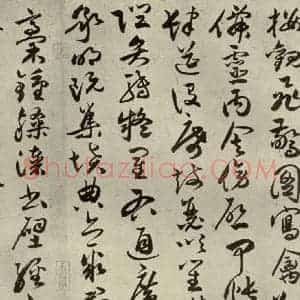 樓觀飛驚圖寫禽
仙靈丙舍傍啟甲帳
肆筵設席鼓瑟吹笙
陛弁轉疑星右通廣
承明既集墳典亦聚群
稾鍾隸漆書壁經
shufaziliao.COM